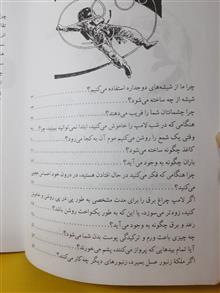 چرا ما از شیشه‌های دوجداره استفاده می‌کنیم؟
شیشه از چه ساخته می‌شود؟
چرا چشمانتان شما را فریب می‌دهند؟
هنگامی که در شب لامپ را خاموش می‌کنید، ابتدا نمی‌توانید ببینید، چرا؟
وقتی یک شمع را روشن می‌کنیم موم آن به کجا می‌رود؟
کاغذ چگونه ساخته می‌شود؟
باران چگونه به وجود می‌آید؟
هنگامی که فکر می‌کنید در حال افتادن هستید، در درون خود احساس عجیبی
می‌کنید؟
اگر لامپ چراغ برق را برای مدت مشخصی به طور پی در پی روشن و خاموش
کنید، زودتر می‌سوزد، یا این که به طور یکنواخت روشن باشد؟
رعد و برق چگونه به وجود می‌آید؟
چه چیزی باعث ورم و ترکیدگی پوست بدن شما می‌شود؟
آیا تمام بیدهایی که پرواز می‌کنند، پشم می‌خورند؟
اگر ملکهٔ زنبور عسل بمیرد، زنبورهای دیگر چه‌کار می‌کنند؟